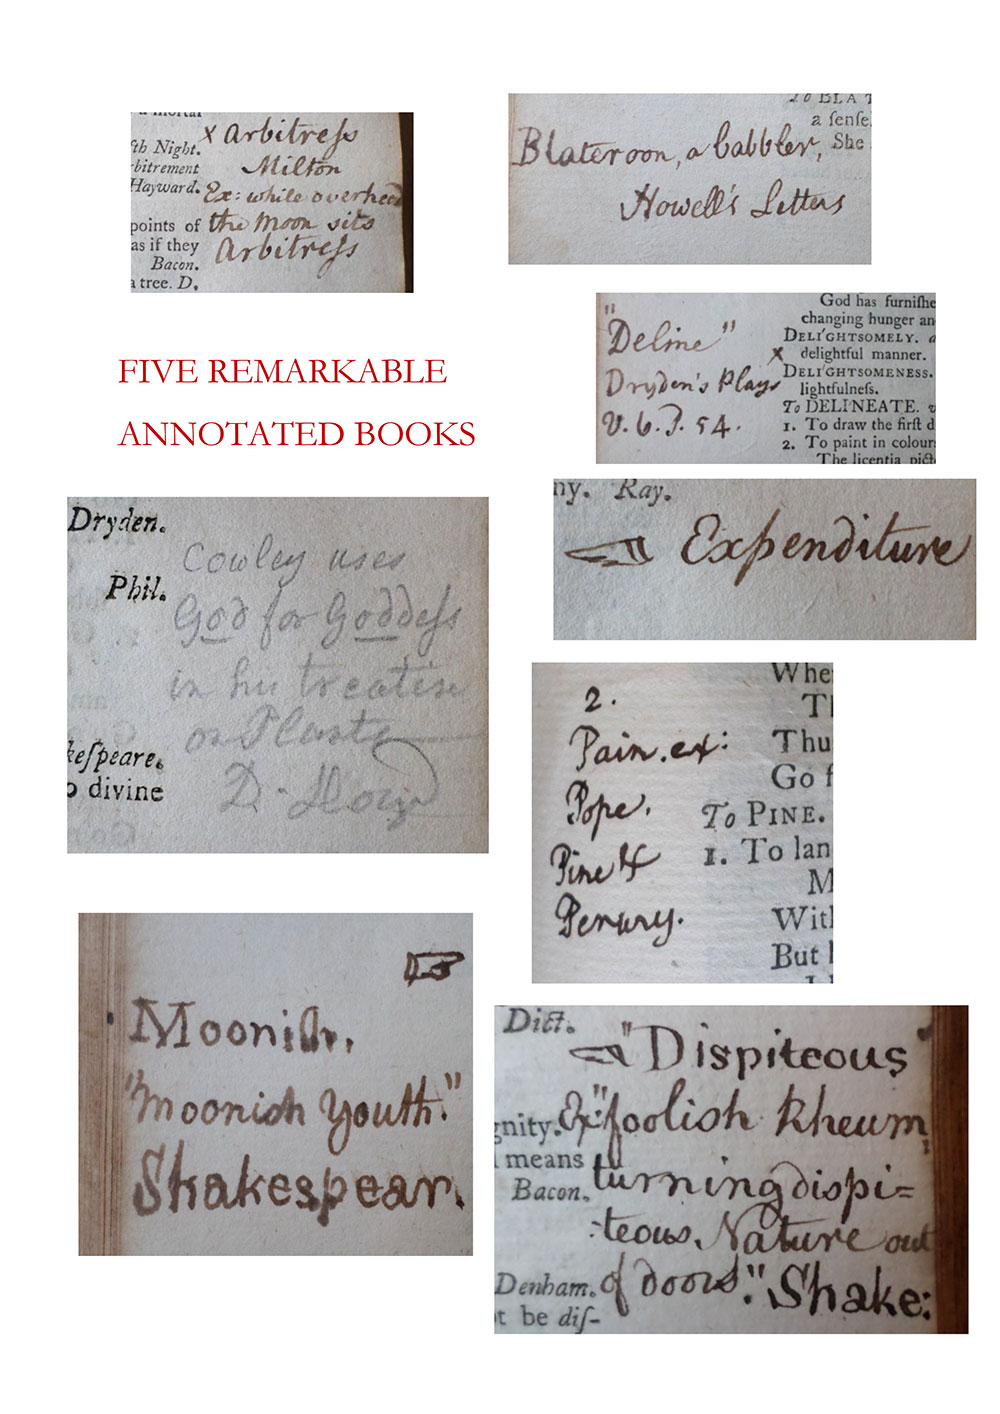 a mortal
fth Night.
rbitrement
Hayward.
points of
as if they
Bacon.
a tree. D.
x Arbitreſs
Milton
Ex: while overhead
the Moon sits
Arbitreſs
To BLAT
a ſenſe.
She
Blateroon, a babbler,
Howell's Letters
FIVE REMARKABLE
ANNOTATED BOOKS
"Deline"
x
Dryden's Plays
V. 6. P. 54.
God has furniſhe
changing hunger an
DELI'GHTSOMELY. a
delightful manner.
DELI'GHTSOMENESS.
lightfulneſs.
To DELI'NEATE. v
1. To draw the firſt d
2. To paint in colour
The licentia pict
ny. Ray.
Expenditure
Dryden.
Phil.
keſpeare.
o divine
Cowley uses
God for Goddeſs
in his treatise
on Plants
D.
2.
Pain. ex:
Pope.
Pine &
Penury.
Whe
Th
Thu
Go f
To PINE.
1. To lan
M
With
But h
Moonish.
"Moonish Youth."
Shakespear.
Dict.
gnity.
means
Bacon.
Denham.
t be diſ-
"Dispiteous
Ex: "foolish Rheum,
turning dispi=
:teous Nature out
of doors." Shake: